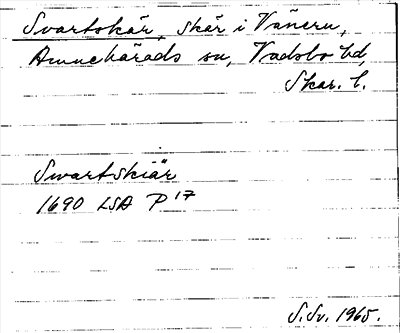 Svartskär, skär i Vänern,
Amnehärads sn, Vadsbo hd,
Skar. l.
Swartskiär
1690 LSA P 17
S.Sv. 1965.